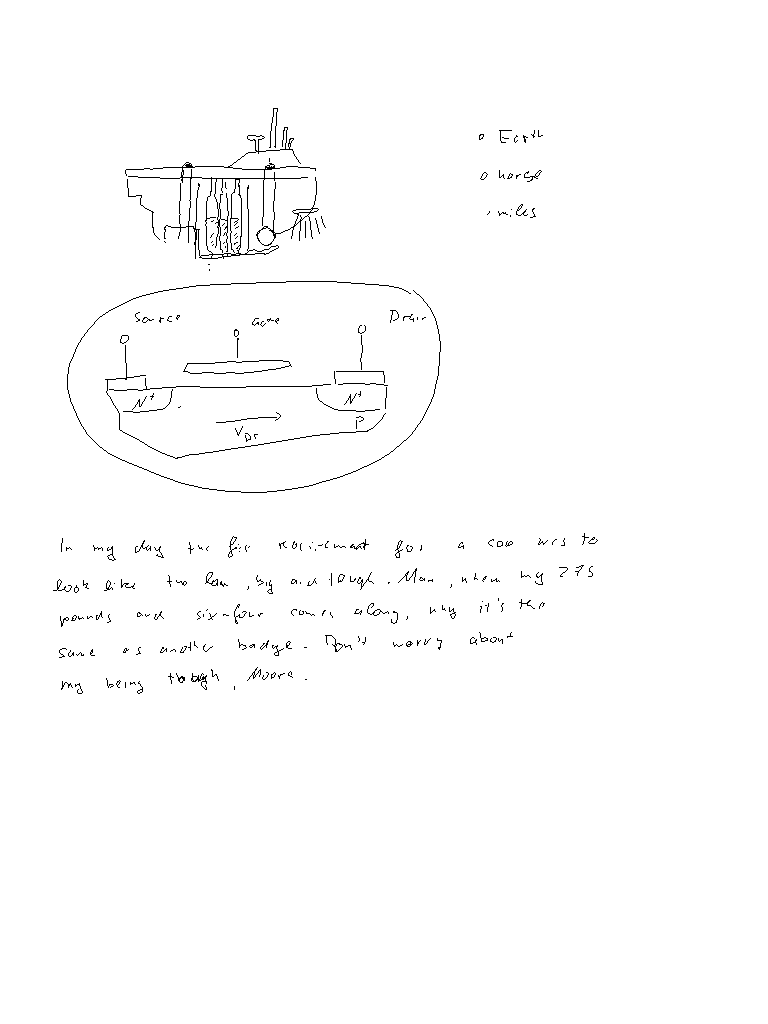 Earth
horse
miles
Source
Gate
Drain
N+
N+
P
VDr
In my day the first requirement for a cop was to
look like the law, big and tough. Man, when my 275
pounds and six-four comes along, why it's the
same as another badge. Don't worry about
my being tough, Moore.